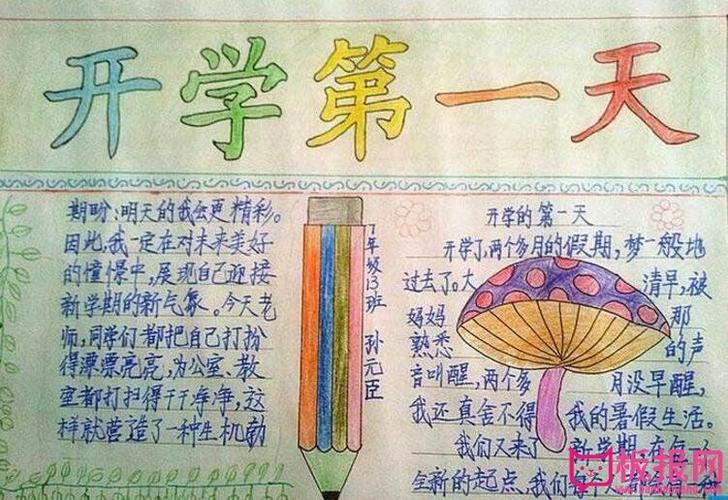 开学第一天
期盼:明天的我会更精彩。
因此,我一定在对未来美好
的憧憬中,展现自己迎接
新学期的新气象。今天老
师,同学们都把自己打扮
得漂漂亮亮,为公室、教
室都打扫得干干净净,这
样就营造了一种生机勃
7年级13班 孙元臣
开学的第一天
开学了,两个多月的假期,梦一般地
过去了。大清早,被
妈妈那
熟悉的声
音叫醒,两个多月没早醒,
我还真舍不得我的暑假生活。
我们又来了新学期,在每一个
全新的起点、我们
板报网